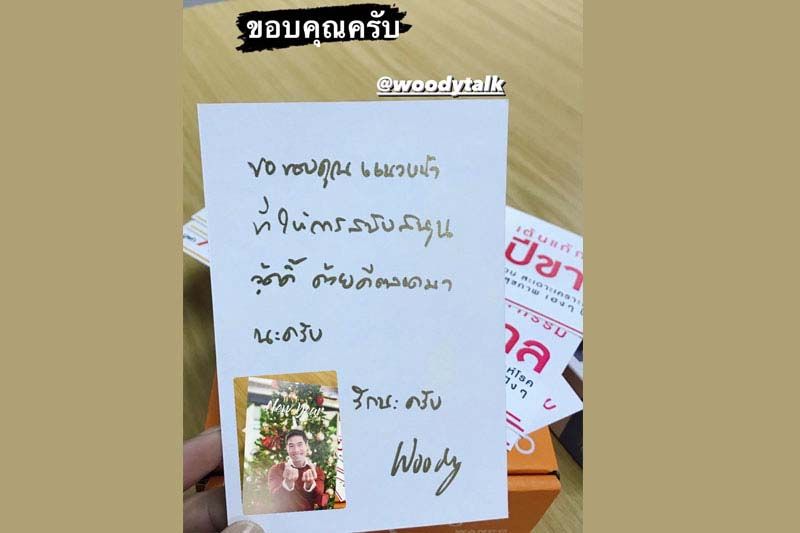 ขอบคุณครับ
@woodytalk
ขอขอบคุณ แนวหน้า
ที่ให้การสนับสนุน
วู้ดดี้ ด้วยดีตลอดมา
นะครับ
รักนะครับ
Woody
New Year
เต้นแก้
ปีขา
สะเดาะเคราะ
สุขภาพ เฮงๆ
กรรม
าล
ห์โรค
างๆ